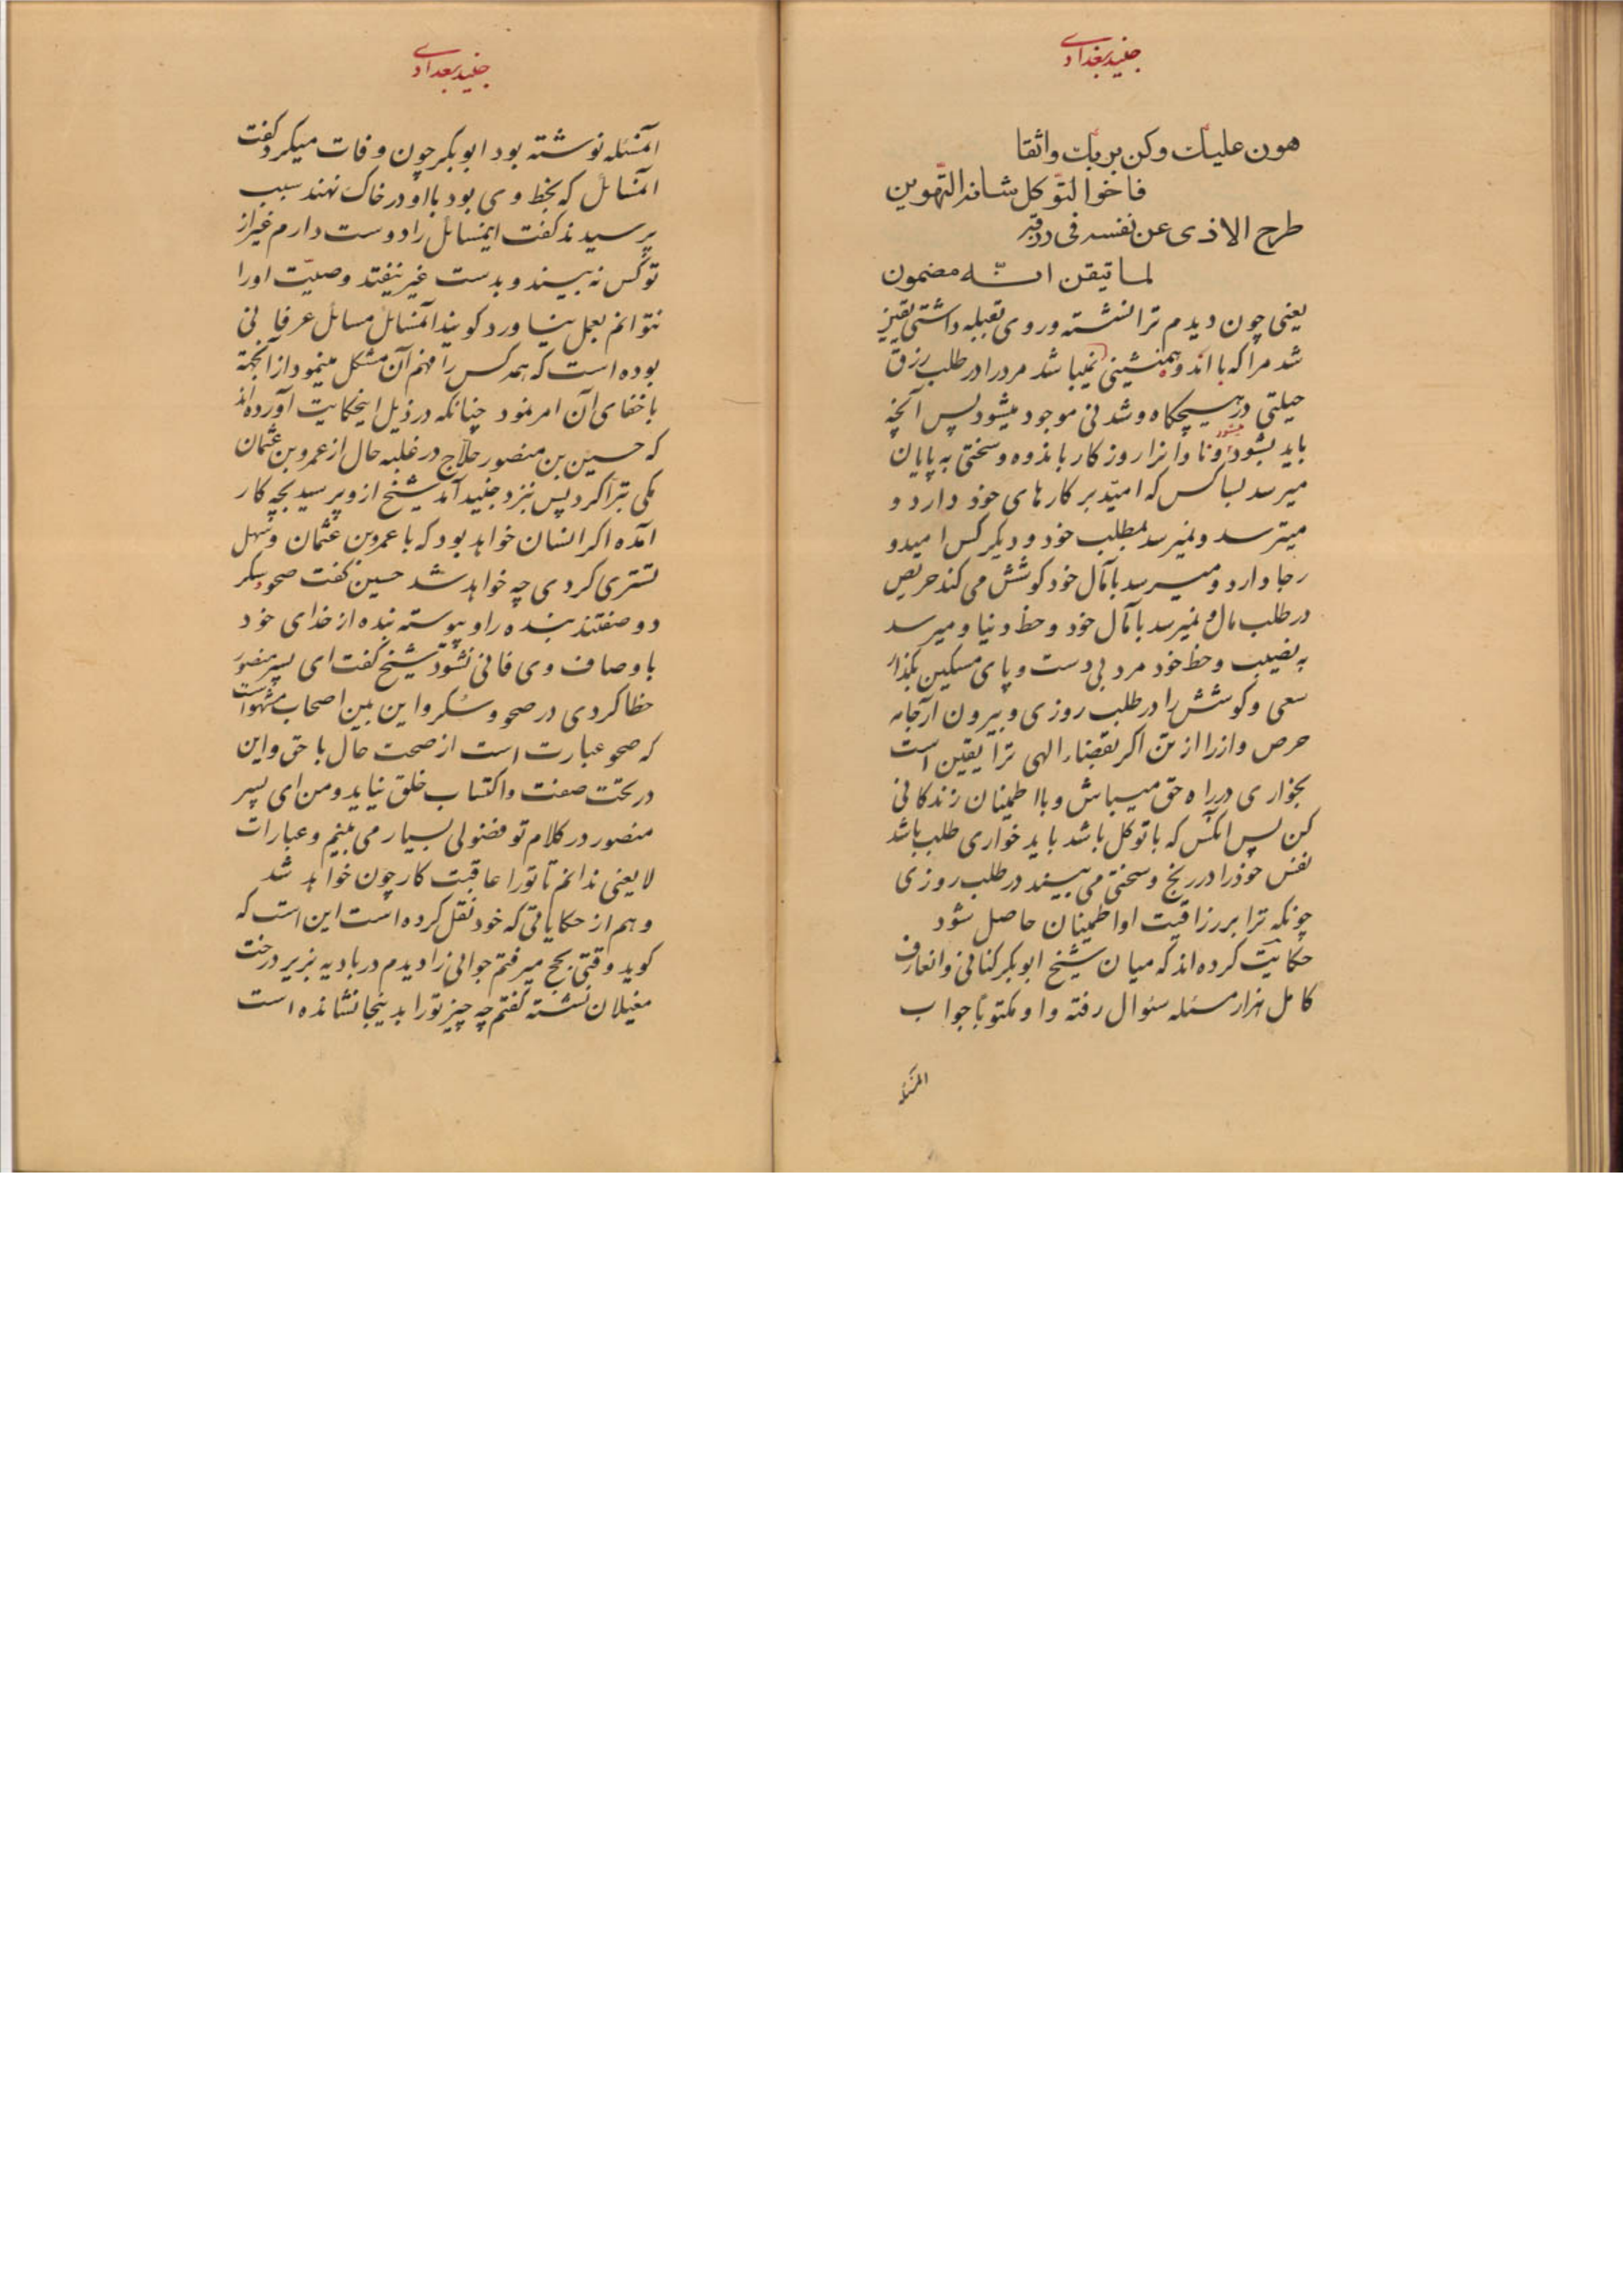 جنید بغدادی
هون علیك وکن بربك واثقا
فاخو التوّکل شانه التّهوین
طرح الاذی عن نفسه فی رزقه
لما تیقن انّـه مضمون
یعنی چون دیدم ترا نشسته و روی بقبله داشتی یقین
شد مرا که با اندوه همنشینی نمیباشد مرد را در طلب رزق
حیلتی در هیچگاه و شدنی موجود میشود پس آنچه
باید بشود میشود و نادانرا روزگار باندوه و سختی به پایان
میرسد بسا کس که امیّد بر کارهای خود دارد و
میترسد و نمیرسد بمطلب خود و دیگر کس امید و
رجا دارد و میرسد بآمال خود کوشش می کند حریص
در طلب مال و نمیرسد بآمال خود و حظ دنیا و میرسد
به نصیب و حظ خود مرد بی دست و پای مسکین بگذار
سعی و کوشش را در طلب روزی و بیرون آر جامه
حرص و از را از تن اکر بقضاء الهی ترا یقین است
بخواری در راه حق میباش و با اطمینان زندکانی
کن پس آنکس که با توکل باشد باید خواری طلب باشد
نفس خود را در رنج و سختی می بیند در طلب روزی
چونکه ترا بر رزاقیت او اطمینان حاصل شود
حکایت کرده اند که میان شیخ ابوبکر کتانی و انعارف
کامل هزار مسئله سئوال رفته و او مکتوبا جواب
المسئله
جنید بغدادی
آنمسئله نوشته بود ابوبکر چون وفات میکرد کفت
آنمسائل که بخط وی بود با او در خاک نهند سبب
پرسیدند کفت اینمسائل را دوست دارم غیر از
تو کس نه بیند و بدست غیر نیفتد وصیّت او را
نتوانم بعمل بیاورد کویند آنمسائل مسائل عرفانی
بوده است که همه کس را فهم آن مشکل مینمود از آنجهة
باخفای آن امر نمود چنانکه در ذیل اینحکایت آورده اند
که حسین بن منصور حلاج در غلبه حال از عمرو بن عثمان
مکی تبرّا کرد پس نزد جنید آمد شیخ ازو پرسید بچه کار
آمده اکر انسان خواهد بود که با عمرو بن عثمان و سهل
تستری کردی چه خواهد شد حسین کفت صحو و سکر
دو صفتند بنده را و پیوسته بنده از خدای خود
باوصاف وی فانی نشود شیخ کفت ای پسر منصور
خطا کردی در صحو و سُکر و این بین اصحاب مشهور است
که صحو عبارت است از صحت حال با حق و این
در تحت صفت و اکتساب خلق نیاید و من ای پسر
منصور در کلام تو فضولی بسیار می بینم و عبارات
لا یعنی ندانم تا تو را عاقبت کار چون خواهد شد
و هم از حکایاتی که خود نقل کرده است این است که
کوید وقتی بحج میرفتم جوانی را دیدم در بادیه بزیر درخت
مغیلان نشسته کفتم چه چیز تو را بدینجا نشانده است